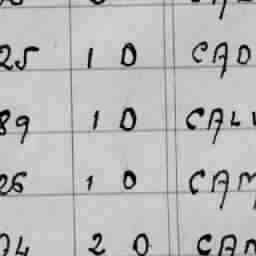 25 10 CAD
89 10 CAL
26 10 CAM
04 20 CAN